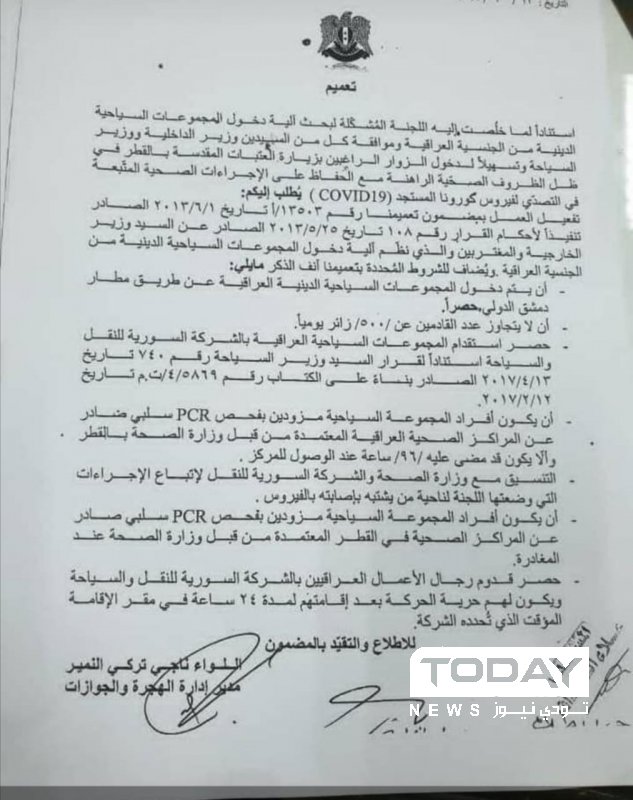 التاريخ :
تعميم
استناداً لما خلُصت إليه اللجنة المُشكّلة لبحث آلية دخول المجموعات السياحية
الدينية من الجنسية العراقية وموافقة كل من السيدين وزير الداخلية ووزير
السياحة وتسهيلاً لدخول الزوار الراغبين بزيارة العتبات المقدسة بالقطر في
ظل الظروف الصحّية الراهنة مع الحفاظ على الإجراءات الصحية المتّبعة
في التصدّي لفيروس كورونا المستجد (COVID19) يُطلب إليكم:
تفعيل العمل بمضمون تعميمنا رقم ١٣٥٠٣/أ تاريخ ٢٠١٣/٦/١ الصادر
تنفيذاً لأحكام القرار رقم ١٠٨ تاريخ ٢٠١٣/٥/٢٥ الصادر عن السيد وزير
الخارجية والمغتربين والذي نظم آلية دخول المجموعات السياحية الدينية من
الجنسية العراقية .ويُضاف للشروط المُحددة بتعميمنا آنف الذكر مايلي:
- أن يتم دخول المجموعات السياحية الدينية العراقية عن طريق مطار
دمشق الدولي,حصراً.
- أن لا يتجاوز عدد القادمين عن /٥٠٠/ زائر يومياً.
- حصر استقدام المجموعات السياحية العراقية بالشركة السورية للنقل
والسياحة استناداً لقرار السيد وزير السياحة رقم ٧٤٠ تاريخ
٢٠١٧/٤/١٣ الصادر بناءً على الكتاب رقم ٤/٥٨٦٩/ت.م تاريخ
٢٠١٧/٢/١٢.
- أن يكون أفراد المجموعة السياحية مزودين بفحص PCR سلبي صادر
عن المراكز الصحية العراقية المعتمدة من قبل وزارة الصحة بالقطر
وألا يكون قد مضى عليه /٩٦/ ساعة عند الوصول للمركز .
- التنسيق مع وزارة الصحة والشركة السورية للنقل لإتباع الإجراءات
التي وضعتها اللجنة لناحية من يشتبه بإصابته بالفيروس .
- أن يكون أفراد المجموعة السياحية مزودين بفحص PCR سلبي صادر
عن المراكز الصحية في القطر المعتمدة من قبل وزارة الصحة عند
المغادرة.
- حصر قدوم رجال الأعمال العراقيين بالشركة السورية للنقل والسياحة
ويكون لهم حرية الحركة بعد إقامتهم لمدة ٢٤ ساعة في مقر الإقامة
المؤقت الذي تُحدده الشركة.
للاطلاع والتقيّد بالمضمون
اللواء ناجي تركي النمير
مدير إدارة الهجرة والجوازات
TODAY
NEWS تودي نيوز